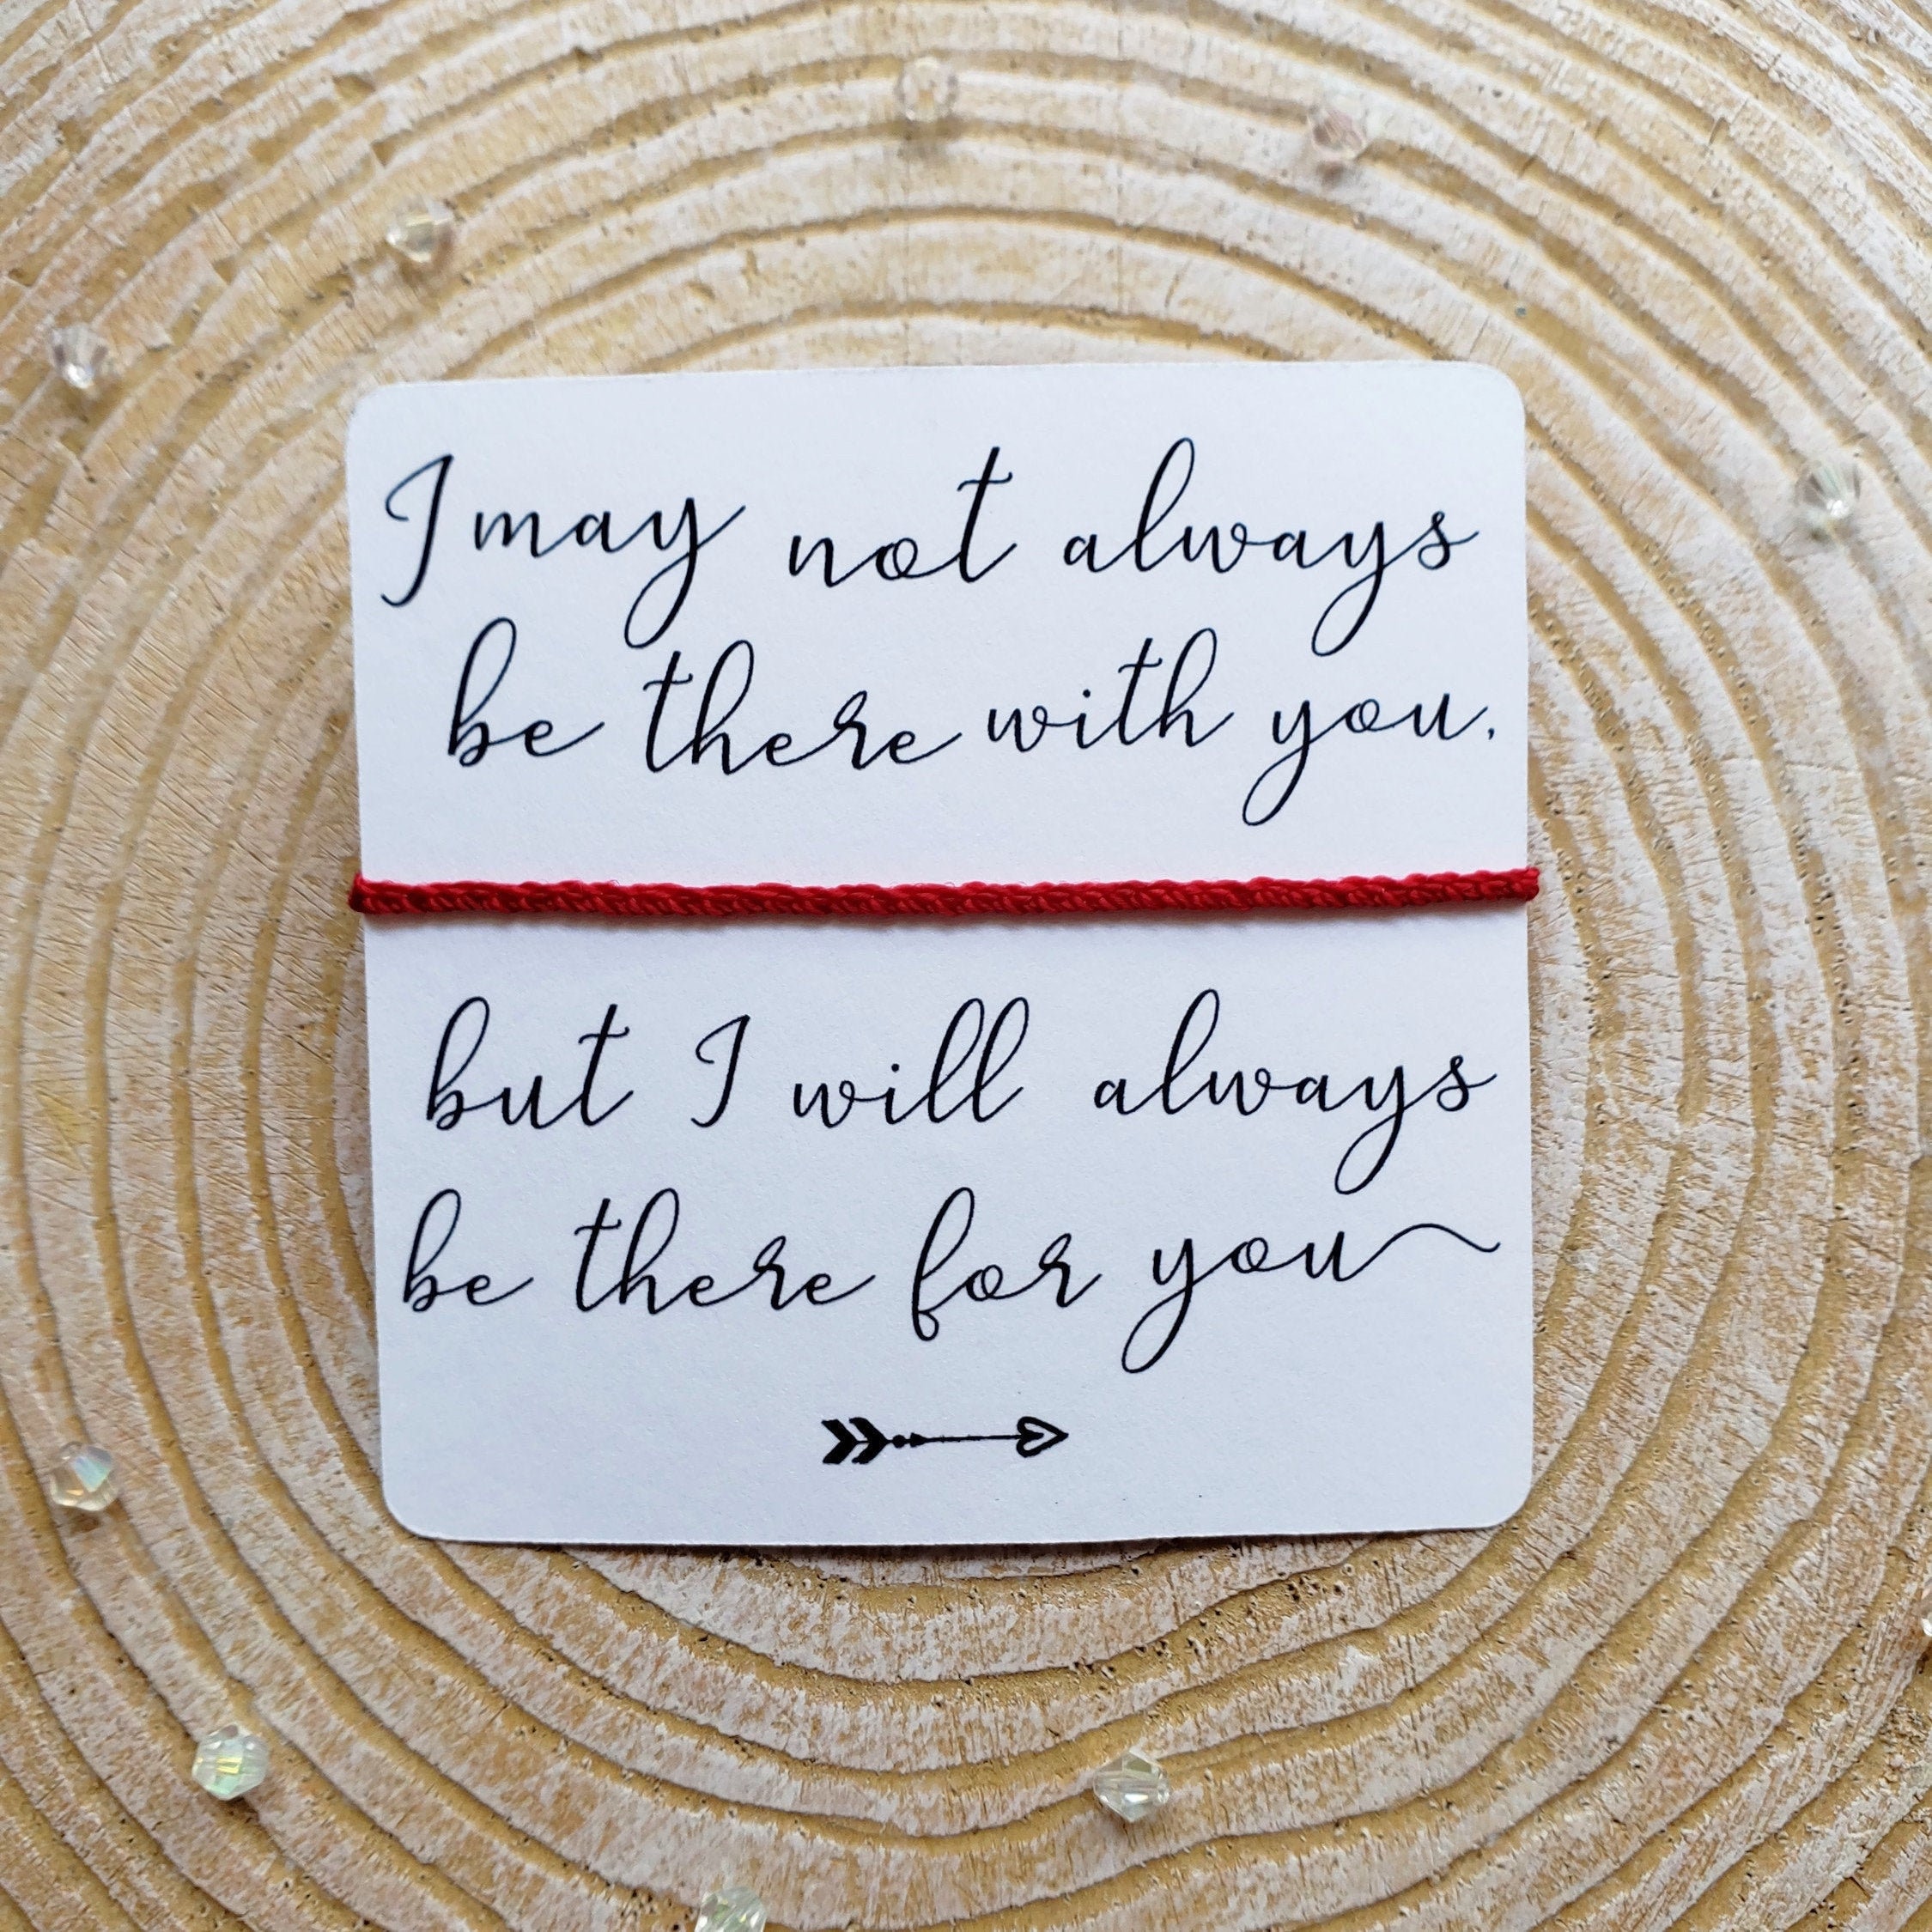 I may not always
be there with you,
but I will always
be there for you